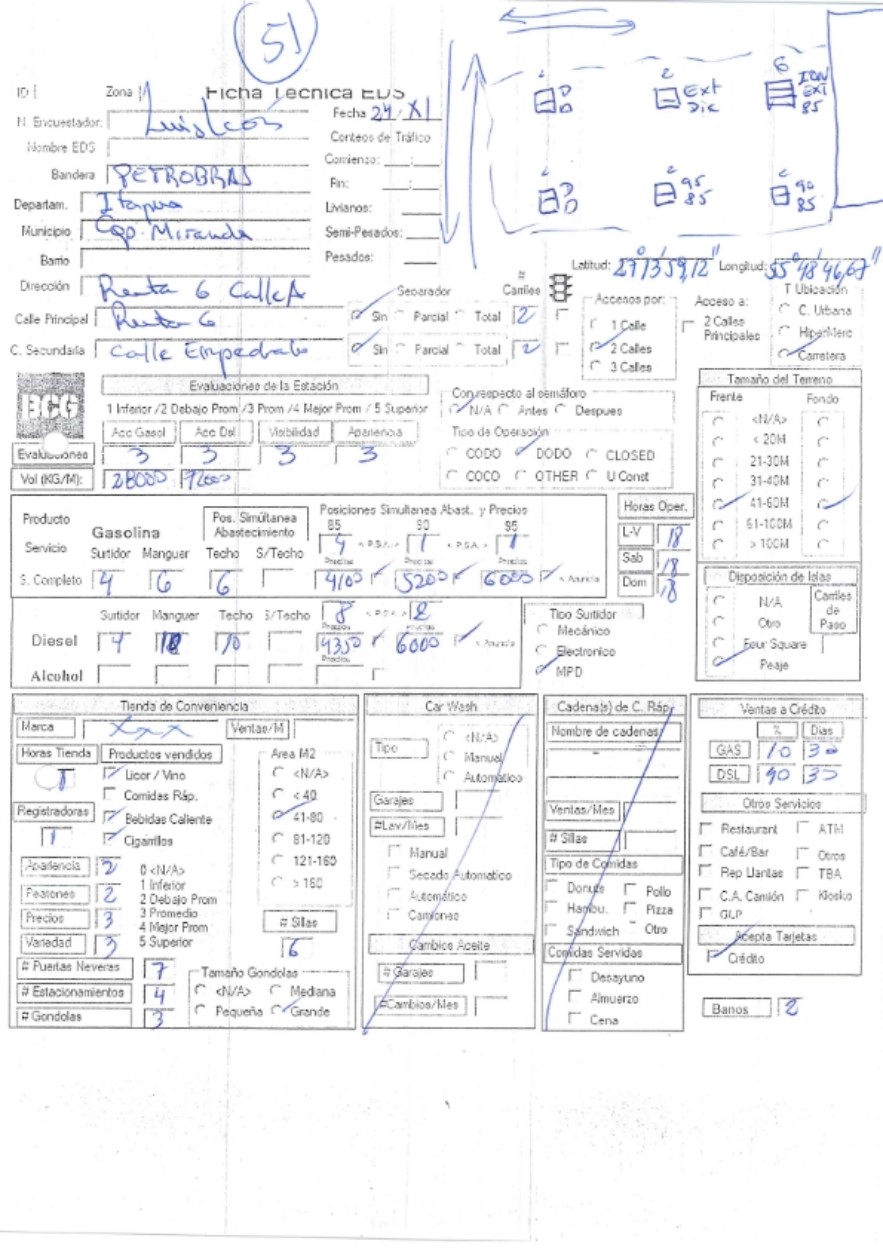 51
ID Zona Ficha Tecnica EDS
N. Encuestador: Luis León Fecha 24/XI
Nombre EDS Conteos de Tráfico
Bandera PETROBRAS Comienzo: __:__
Fin: __:__
Departam. Itapua Livianos:
Municipio Cap. Miranda Semi-Pesados:
Barrio Pesados:
2 D D
2 Ext Dic
6 ION EXT 85
2 D D
2 95 85
2 90 85
Latitud: 27°13'59,12" Longitud: 55°48'46,67"
Dirección Ruta 6 Calle A
Calle Principal Ruta 6
C. Secundaria Calle Empedrado
Separador # Carriles
Sin Parcial Total 2
Sin Parcial Total 2
Accesos por:
1 Calle
2 Calles
3 Calles
Acceso a:
2 Calles Principales
T Ubicación
C. Urbana
HiperMerc
Carretera
ECG
Evaluaciones de la Estación
1 Inferior /2 Debajo Prom /3 Prom /4 Mejor Prom / 5 Superior
Acc Gasol Acc Dsl Visibilidad Apariencia
Evaluaciones 3 3 3 3
Vol (KG/M): 28000 92000
Con respecto al semáforo
N/A Antes Despues
Tipo de Operación
CODO DODO CLOSED
COCO OTHER U Const
Tamaño del Terreno
Frente Fondo
<N/A>
< 20M
21-30M
31-40M
41-60M
61-100M
> 100M
Producto Gasolina Pos. Simúltanea Abastecimiento Posiciones Simultanea Abast. y Precios
85 90 95
Servicio Surtidor Manguer Techo S/Techo 4 < P.S.A. > 1 < P.S.A. > 1
Precios Precios Precios
S. Completo 4 6 6 4100 5200 6000 < Anuncia
Horas Oper.
L-V 18
Sab 18
Dom 18
Surtidor Manguer Techo S/Techo 8 < P.S.A. > 2
Precios Precios
Diesel 4 10 10 4350 6000 < Anuncia
Precios
Alcohol
Tipo Surtidor
Mecánico
Electronico
MPD
Disposición de Islas
N/A
Otro
Four Square
Peaje
Carriles de Paso
Tienda de Conveniencia
Marca Ventas/M
Horas Tienda Productos vendidos Area M2
Licor / Vino
Comidas Ráp.
Bebidas Caliente
Cigarrillos
Registradoras 1
<N/A>
< 40
41-80
81-120
121-160
> 160
Apariencia 2
Peatones 2
Precios 3
Variedad 3
0 <N/A>
1 Inferior
2 Debajo Prom
3 Promedio
4 Mejor Prom
5 Superior
# Sillas
6
# Puertas Neveras 7
# Estacionamientos 4
# Gondolas 3
Tamaño Gondolas
<N/A> Mediana
Pequeña Grande
Car Wash
Tipo
<N/A>
Manual
Automático
Garajes
#Lav/Mes
Manual
Secado Automatico
Automático
Camiones
Cambios Aceite
# Garajes
#Cambios/Mes
Cadena(s) de C. Ráp.
Nombre de cadenas
Ventas/Mes
# Sillas
Tipo de Comidas
Donuts Pollo
Hambu. Pizza
Sandwich Otro
Comidas Servidas
Desayuno
Almuerzo
Cena
Ventas a Crédito
% Dias
GAS 10 30
DSL 90 30
Otros Servicios
Restaurant ATM
Café/Bar Otros
Rep Llantas TBA
C.A. Camión Kiosko
GLP
Acepta Tarjetas
Crédito
Banos 2